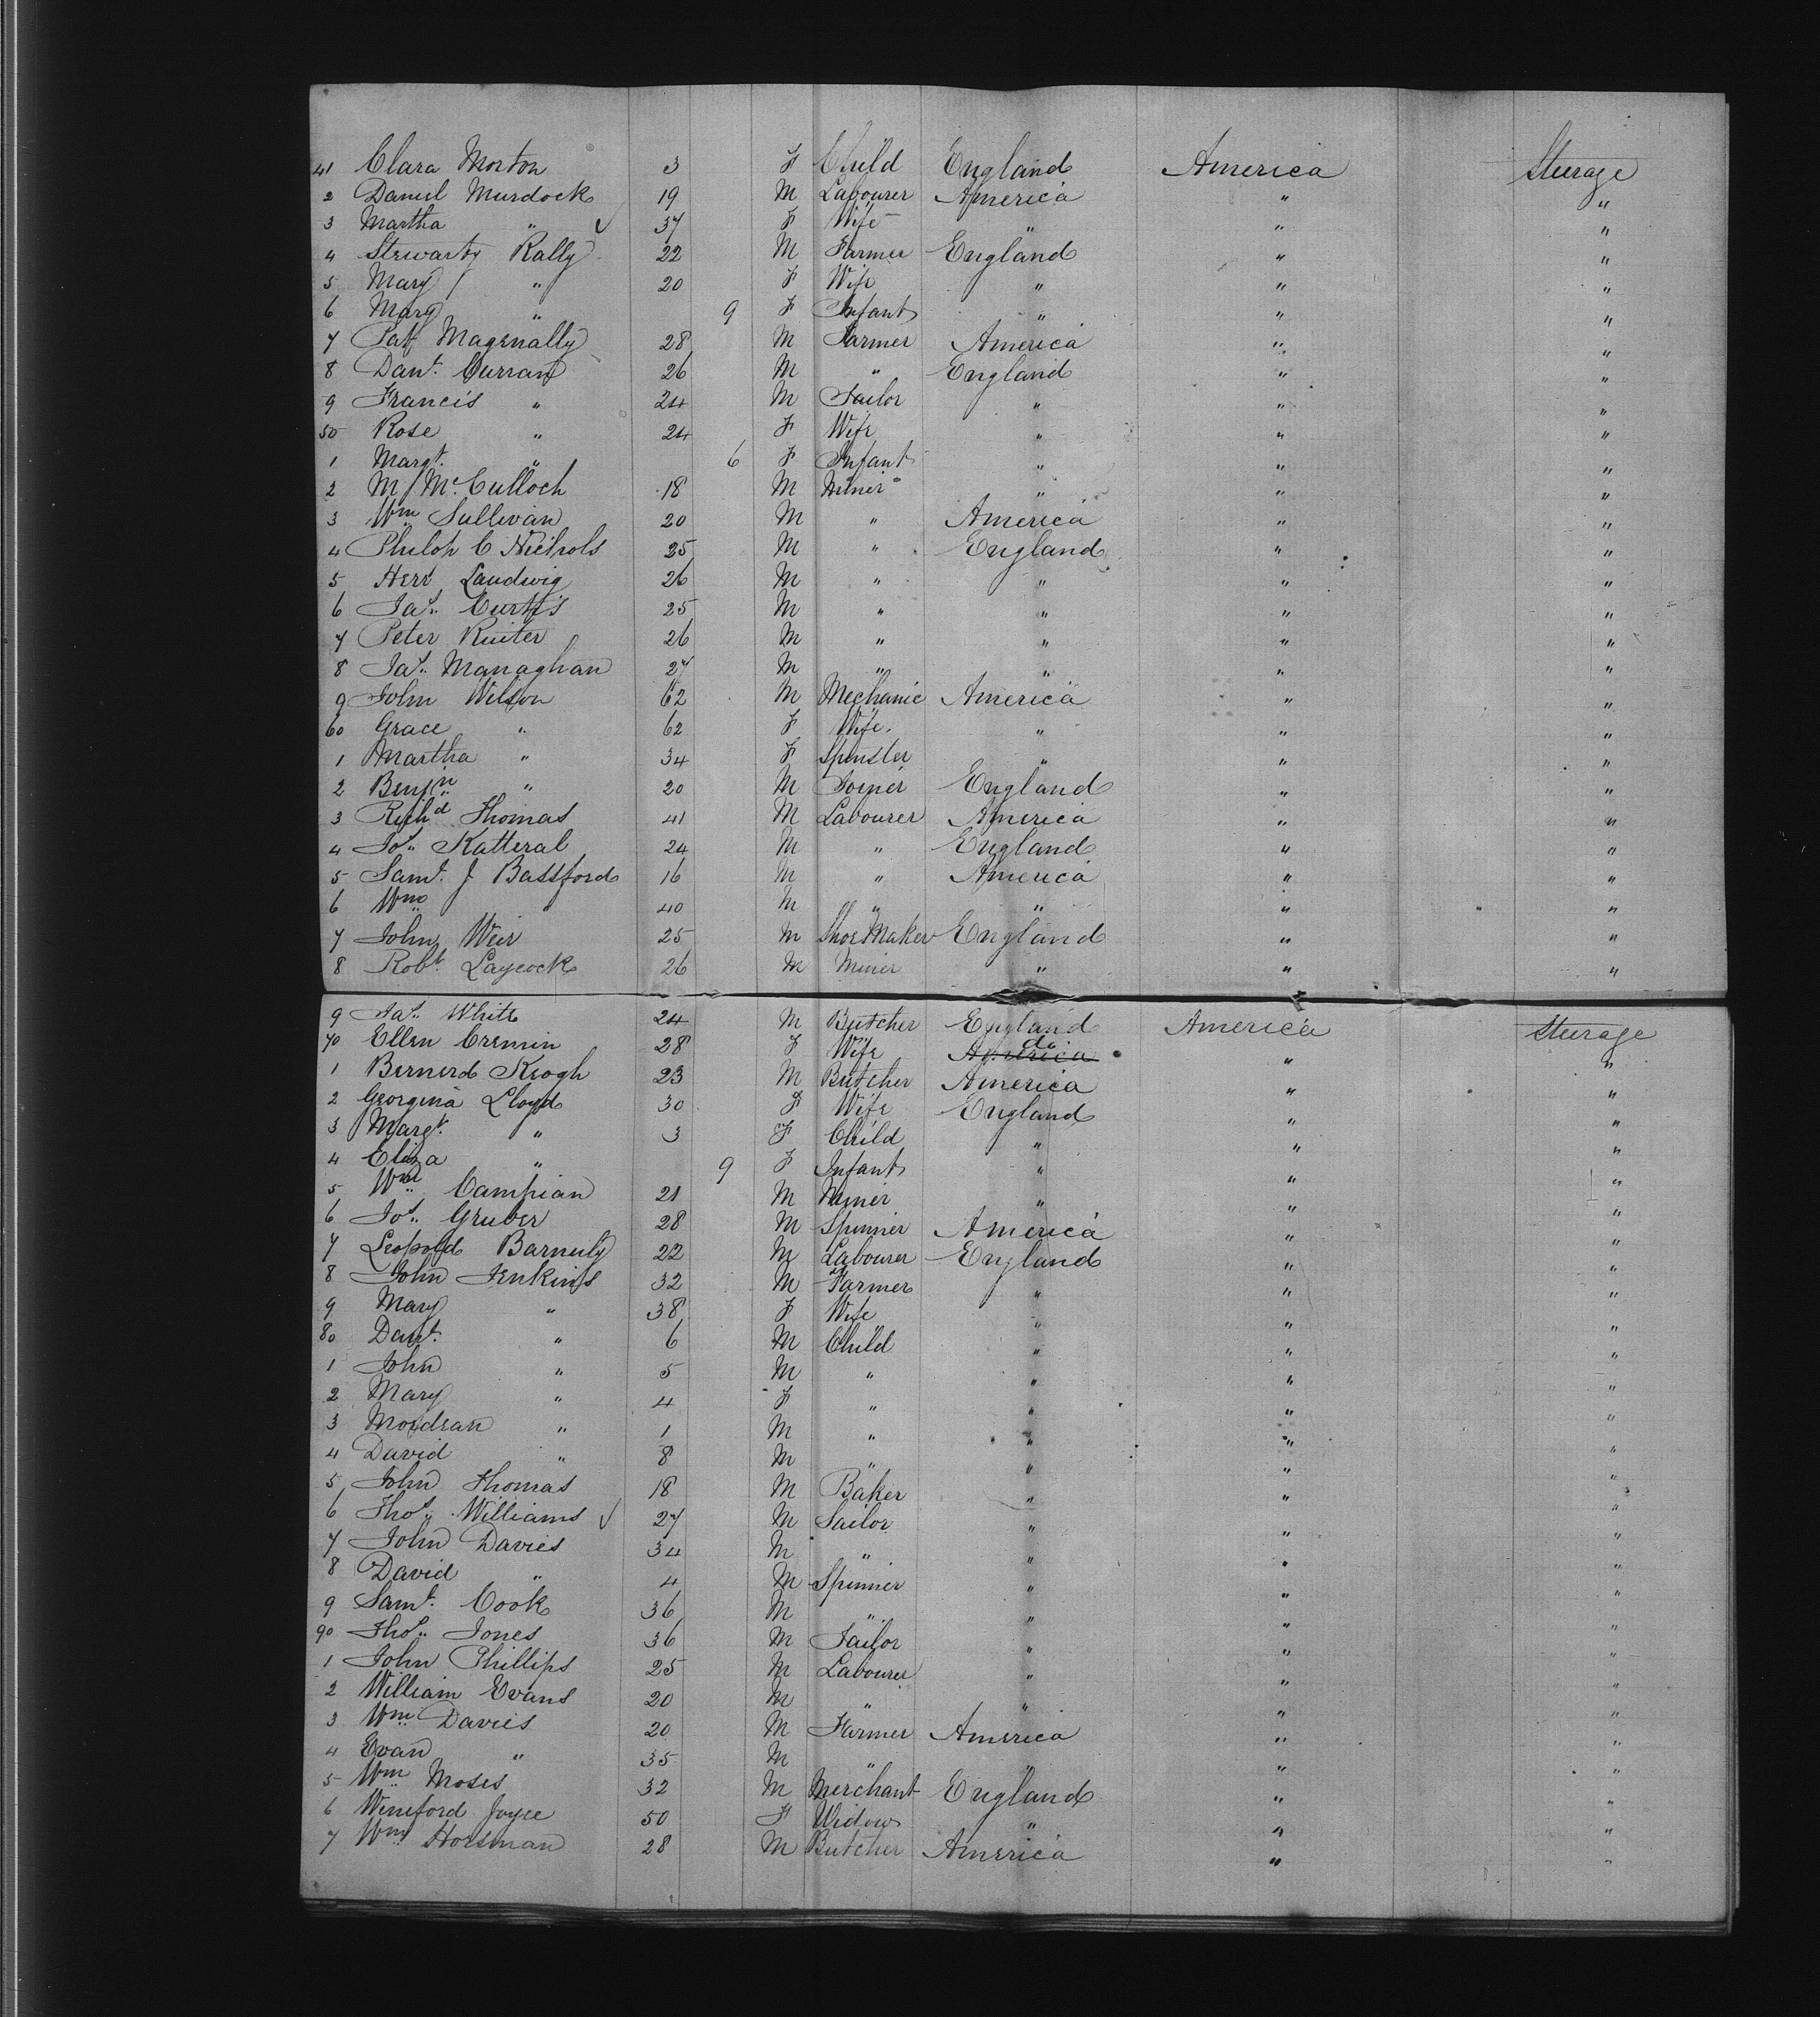 41 Clara Morton 3 F Child England America Steerage
2 Daniel Murdock 19 M Labourer America " "
3 Martha " 37 F Wife " " "
4 Stewarty Rally 22 M Farmer England " "
5 Mary " 20 F Wife " " "
6 Marg " 9 F Infant " " "
7 Pat Magenally 28 M Farmer America " "
8 Danl. Curran 26 M " England " "
9 Francis " 24 M Tailor " " "
50 Rose " 24 F Wife " " "
1 Margt. " 6 F Infant " " "
2 M McCulloch 18 M Miner " " "
3 Wm Sullivan 20 M " America " "
4 Philip C Nichols 25 M " England " "
5 Herr Laudwig 26 M " " " "
6 Jas. Curtis 25 M " " " "
7 Peter Ruiter 26 M " " " "
8 Jas. Managhan 27 M " " " "
9 John Wilson 62 M Mechanic America " "
60 Grace " 62 F Wife. " " "
1 Martha " 34 F Spinster " " "
2 Benjn " 20 M Joiner England " "
3 Richd Thomas 41 M Labourer America " "
4 Jos. Katteral 24 M " England " "
5 Saml. J Bassford 16 M " America " "
6 Wm " 40 M " " " "
7 John Weir 25 M Shoe Maker England " "
8 Robt. Laycock 26 M Miner " " "
9 Jas. White 24 M Butcher England America Steerage
70 Ellen Cremin 28 F Wife America do " "
1 Bernerd Keogh 23 M Butcher America " "
2 Georgina Lloyd 30 F Wife England " "
3 Margt. " 3 F Child " " "
4 Eliza " 9 F Infant " " "
5 Wm Campian 21 M Miner " " "
6 Jos. Gruber 28 M Spinner America " "
7 Leopold Barnuly 22 M Labourer England " "
8 John Jenkins 32 M Farmer " " "
9 Mary " 38 F Wife " " "
80 Danl. " 6 M Child " " "
1 John " 5 M " " " "
2 Mary " 4 F " " " "
3 Mordean " 1 M " " " "
4 David " 8 M " " " "
5 John Thomas 18 M Baker " " "
6 Thos. Williams 27 M Sailor " " "
7 John Davies 34 M " " " "
8 David " 4 M Spinner " " "
9 Saml. Cook 36 M " " " "
90 Thos. Jones 36 M Tailor " " "
1 John Phillips 25 M Labourer " " "
2 William Evans 20 M " " " "
3 Wm Davies 20 M Farmer America " "
4 Evan " 35 M " " " "
5 Wm Moses 32 M Merchant England " "
6 Winiford Joyce 50 F Widow " " "
7 Wm Horsman 28 M Butcher America " "